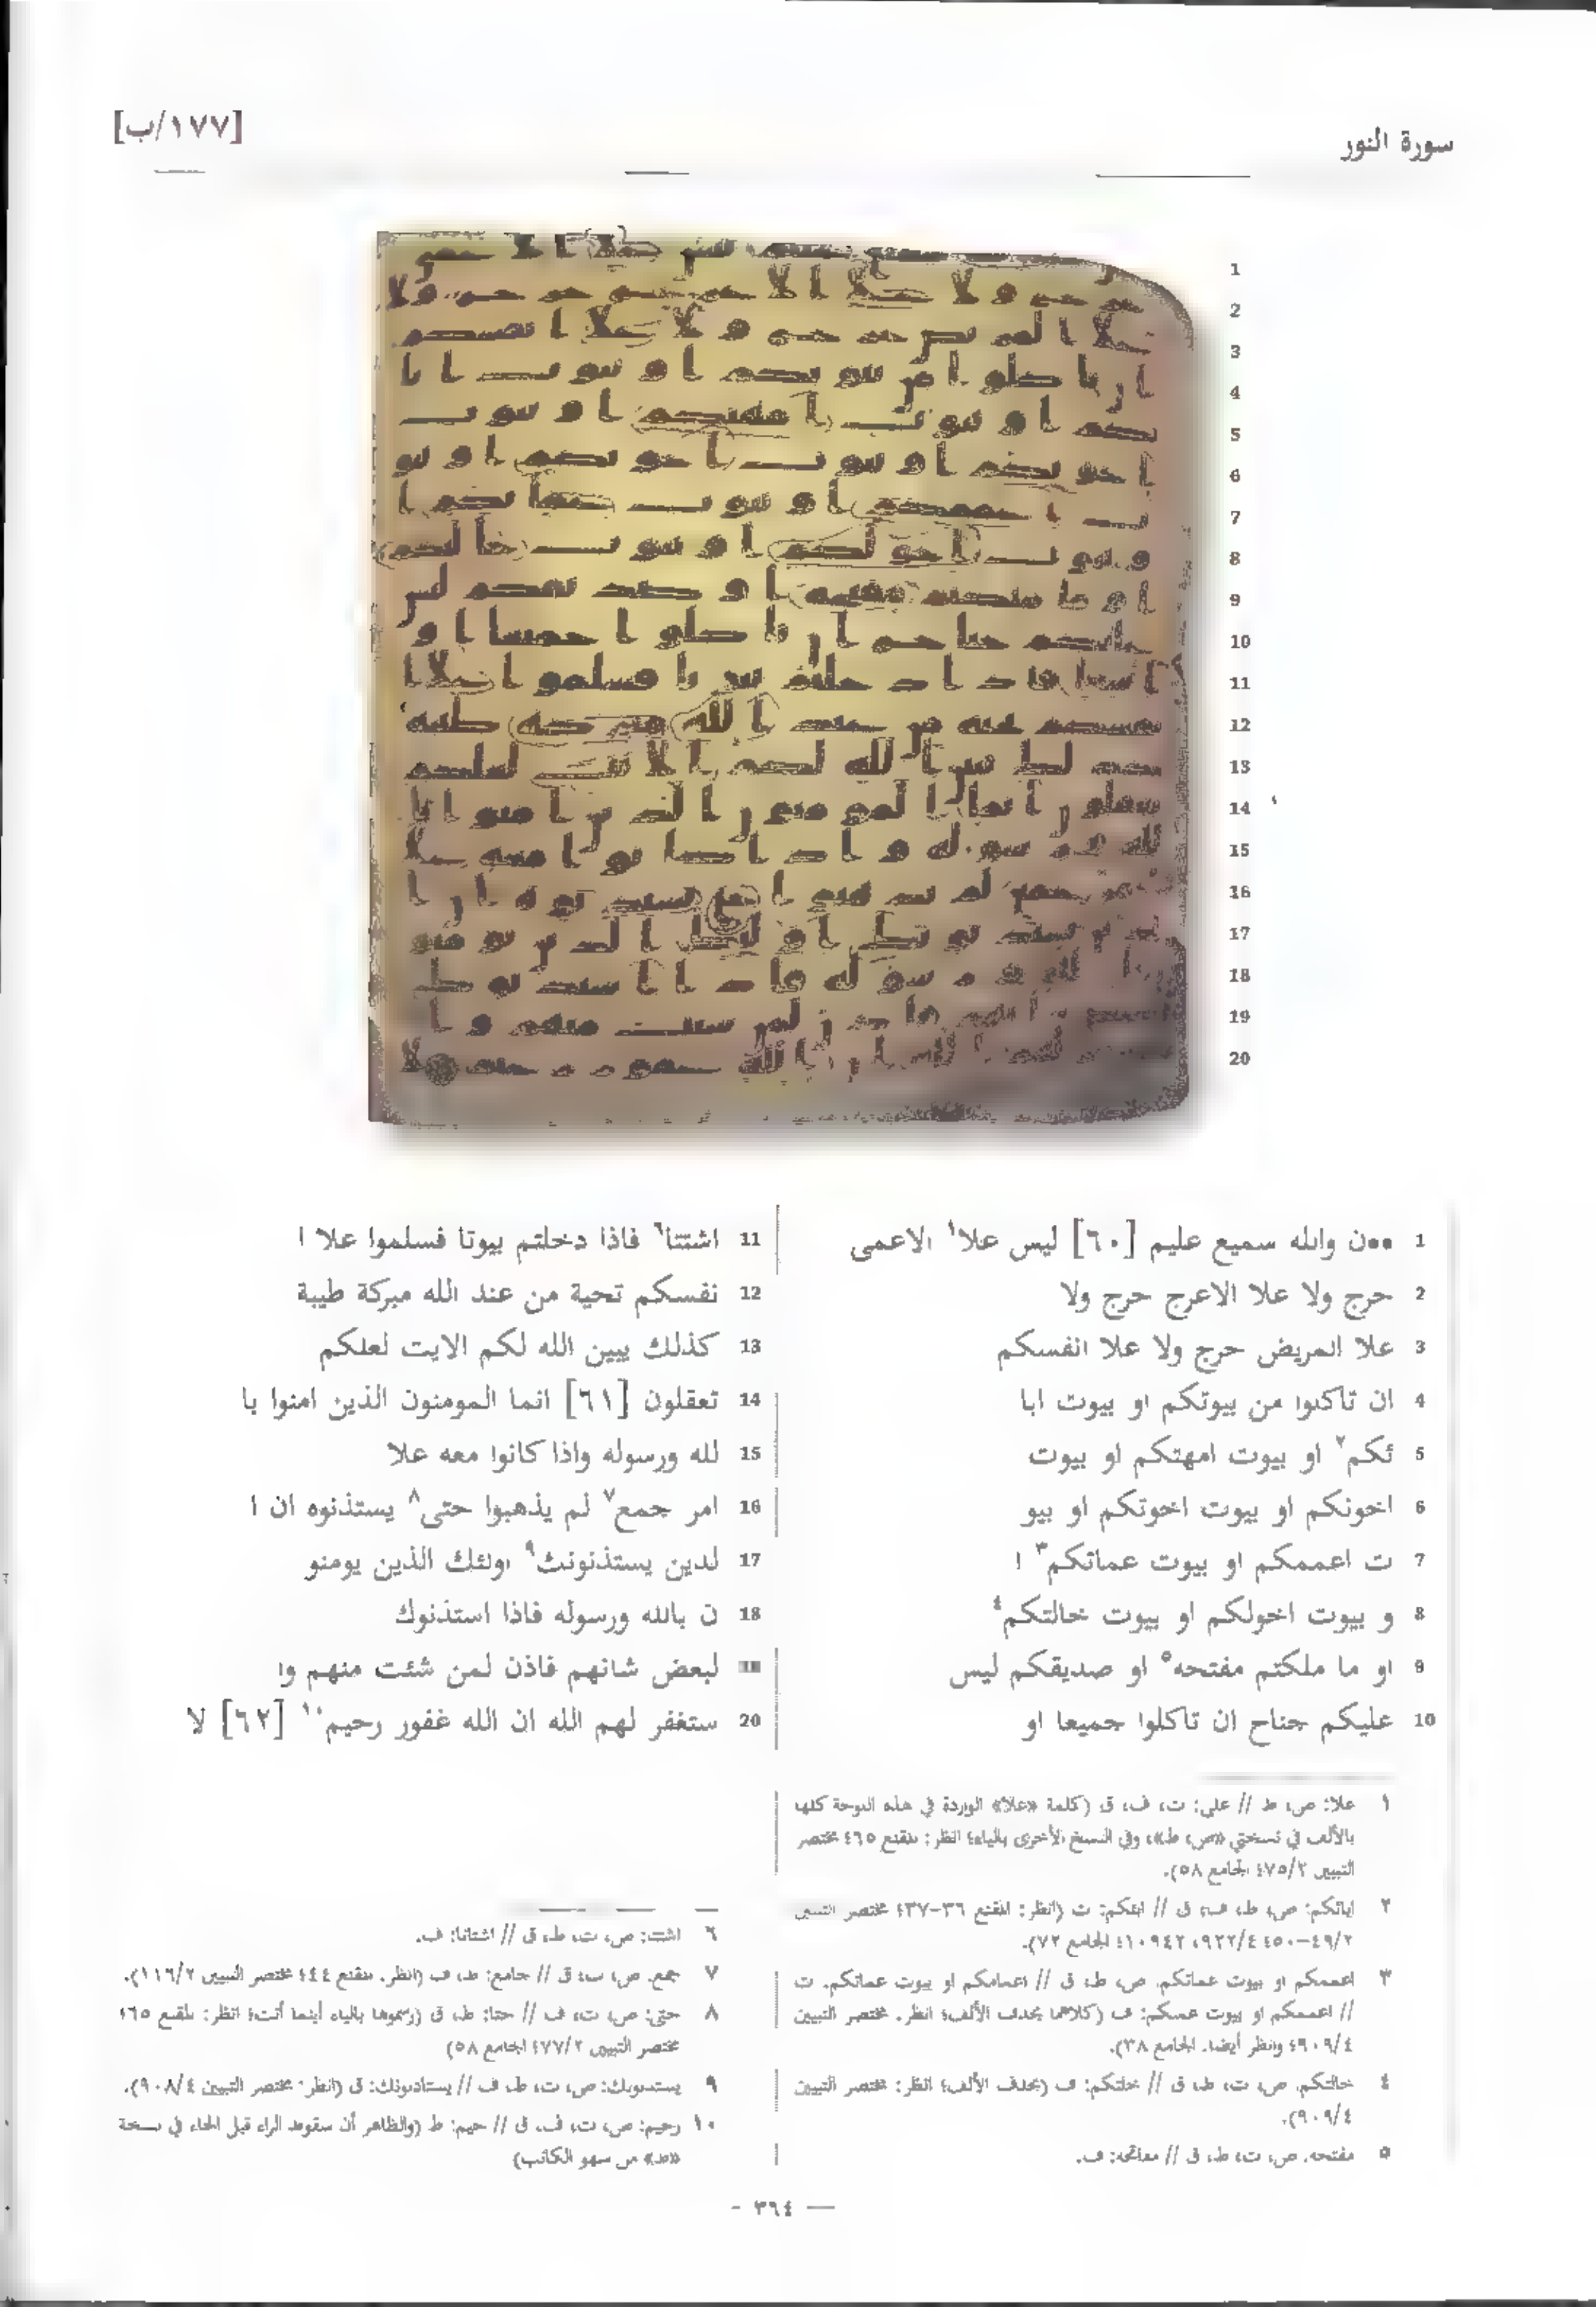 [١٧٧/ب]
سورة النور
1 ن والله سميع عليم [٦٠] ليس علا١ الاعمى
2 حرج ولا علا الاعرج حرج ولا
3 علا المريض حرج ولا علا انفسكم
4 ان تاكلوا من بيوتكم او بيوت ابا
5 ئكم٢ او بيوت امهتكم او بيوت
6 اخونكم او بيوت اخوتكم او بيو
7 ت اعممكم او بيوت عماتكم٣ ا
8 و بيوت اخولكم او بيوت خالتكم٤
9 او ما ملكتم مفتحه٥ او صديقكم ليس
10 عليكم جناح ان تاكلوا جميعا او
11 اشتتا٦ فاذا دخلتم بيوتا فسلموا علا ا
12 نفسكم تحية من عند الله مبركة طيبة
13 كذلك يبين الله لكم الايت لعلكم
14 تعقلون [٦١] انما المومنون الذين امنوا با
15 لله ورسوله واذا كانوا معه علا
16 امر جمع٧ لم يذهبوا حتى٨ يستذنوه ان ا
17 لذين يستذنونك٩ اولئك الذين يومنو
18 ن بالله ورسوله فاذا استذنوك
لبعض شانهم فاذن لمن شئت منهم وا
20 ستغفر لهم الله ان الله غفور رحيم١٠ [٦٢] لا
١ علا: ص، ط // على: ت، ف، ق (كلمة «علا» الواردة في هذه اللوحة كلها
بالألف في نسختي «ص، ط»، وفي النسخ الأخرى بالياء؛ انظر: المقنع ٤٦٥ مختصر
التبيين ٤٧٥/٢ الجامع ٥٨).
٢ ابائكم: ص، ط، ف، ق // ابئكم: ت (انظر: المقنع ٣٦-٤٣٧ مختصر التبيين
٤٩/٢-٥٠، الجامع ٧٢).
٣ اعممكم او بيوت عماتكم: ص، ط، ق // اعمامكم او بيوت عماتكم: ت
// اعممكم او بيوت عمتكم: ف (كلاهما بحذف الألف؛ انظر: مختصر التبيين
٩٠٩/٤ وانظر أيضا: الجامع ٣٨).
٤ خالتكم: ص، ت، ط، ق // خلتكم: ف (بحذف الألف؛ انظر: مختصر التبيين
٩٠٩/٤).
٥ مفتحه: ص، ت، ط، ق // مفاتحه: ف.
٦ اشتتا: ص، ت، ط، ق // اشتاتا: ف.
٧ جمع: ص، ت، ق // جامع: ط، ف (انظر: المقنع ٤٤٤ مختصر التبيين ١١٦/٢).
٨ حتى: ص، ت، ف // حتا: ط، ق (رسموها بالياء أينما أتت؛ انظر: المقنع ٤٦٥
مختصر التبيين ٤٧٧/٢ الجامع ٥٨)
٩ يستذنونك: ص، ت، ط، ف // يستاذنونك: ق (انظر: مختصر التبيين ٩٠٨/٤).
١٠ رحيم: ص، ت، ف، ق // حيم: ط (والظاهر أن سقوط الراء قبل الحاء في نسخة
«ط» من سهو الكاتب)
- ٣٦٤ —